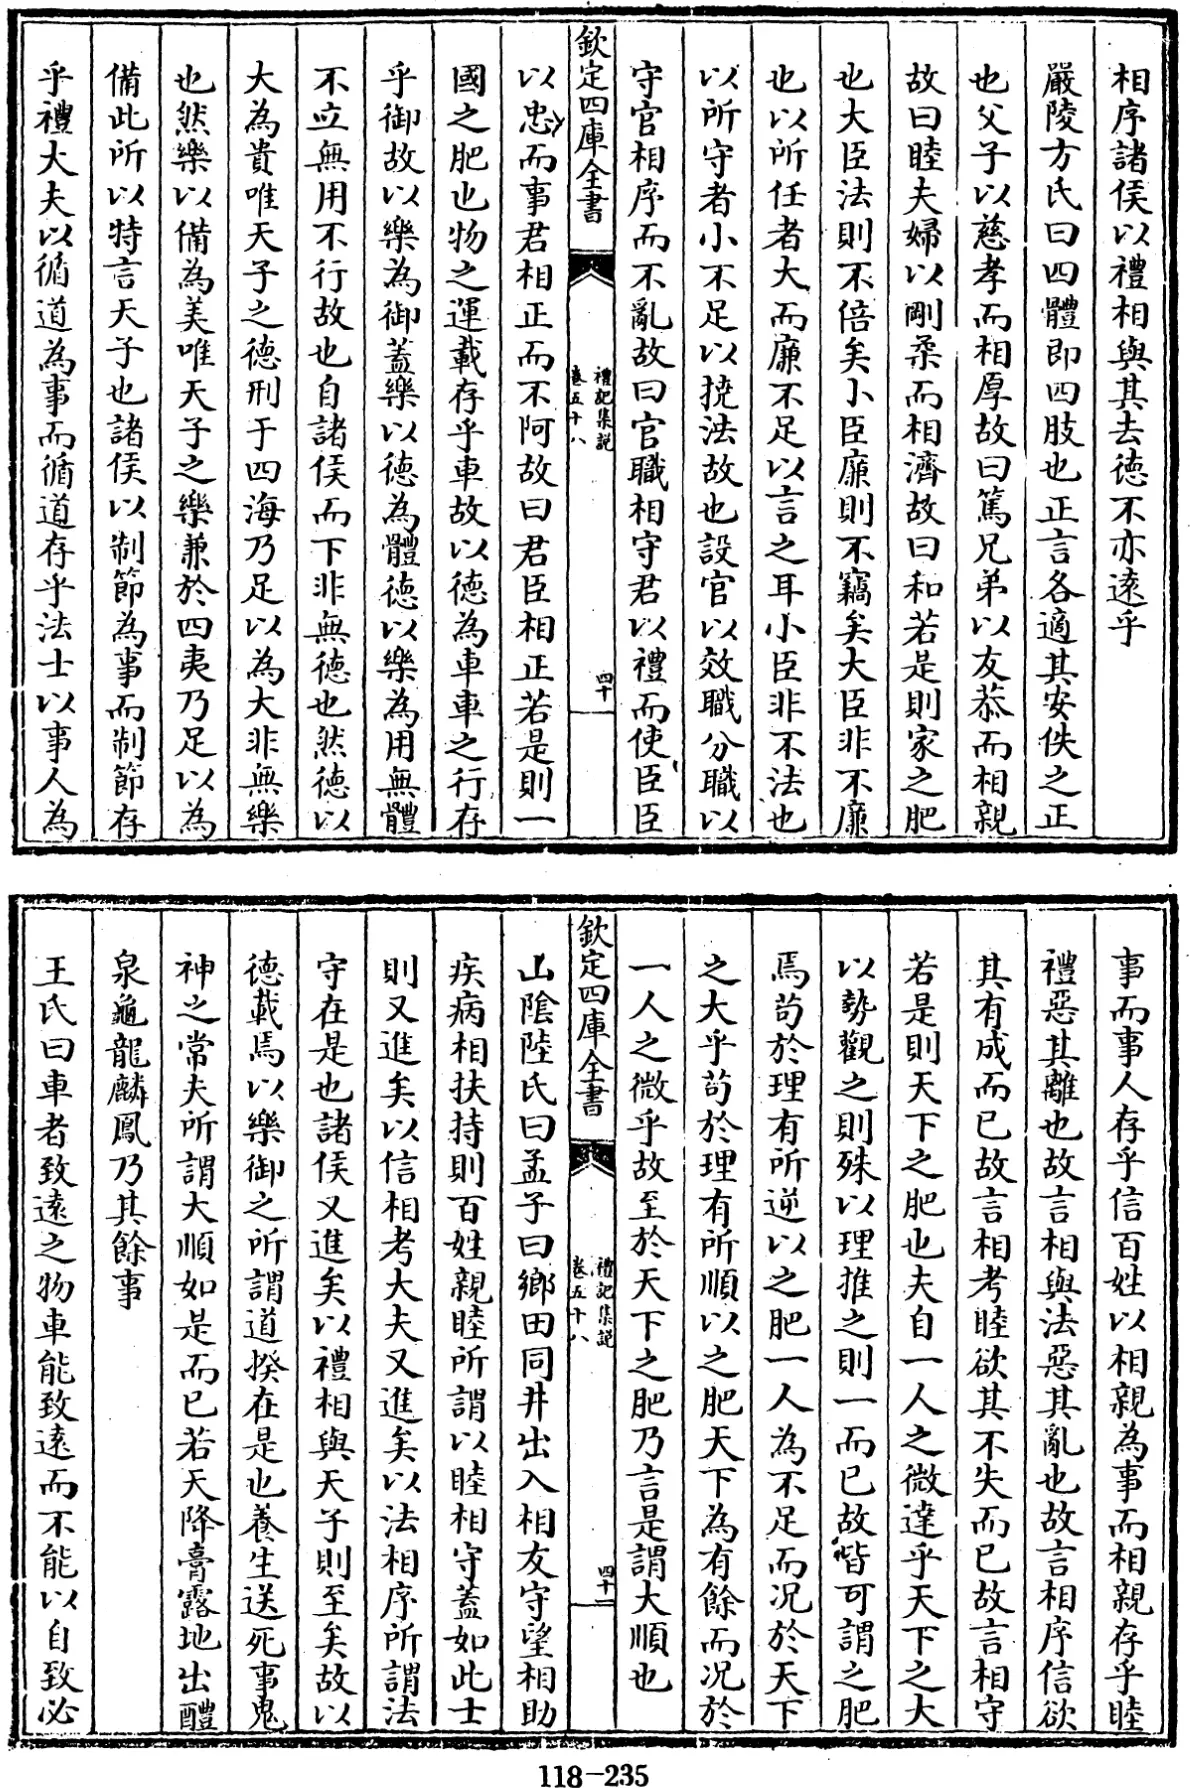 相序諸侯以禮相與其去徳不亦逺乎
嚴陵方氏曰四體即四肢也正言各適其安佚之正
也父子以慈孝而相厚故曰篤兄弟以友恭而相親
故曰睦夫婦以剛柔而相濟故曰和若是則家之肥
也大臣法則不倍矣小臣廉則不竊矣大臣非不廉
也以所任者大而廉不足以言之耳小臣非不法也
以所守者小不足以撓法故也設官以效職分職以
守官相序而不亂故曰官職相守君以禮而使臣臣
欽定四庫全書
禮記集說
卷五十八
四十
以忠而事君相正而不阿故曰君臣相正若是則一
國之肥也物之運載存乎車故以德為車車之行存
乎御故以樂為御蓋樂以德為體德以樂為用無體
不立無用不行故也自諸侯而下非無德也然德以
大為貴唯天子之德刑于四海乃足以為大非無樂
也然樂以備為美唯天子之樂兼於四夷乃足以為
備此所以特言天子也諸侯以制節為事而制節存
乎禮大夫以循道為事而循道存乎法士以事人為
事而事人存乎信百姓以相親為事而相親存乎睦
禮惡其離也故言相與法惡其亂也故言相序信欲
其有成而已故言相考睦欲其不失而已故言相守
若是則天下之肥也夫自一人之微達乎天下之大
以勢觀之則殊以理推之則一而已故皆可謂之肥
焉茍於理有所逆以之肥一人為不足而况於天下
之大乎茍於理有所順以之肥天下為有餘而况於
一人之微乎故至於天下之肥乃言是謂大順也
欽定四庫全書
禮記集說
卷五十八
四十一
山陰陸氏曰孟子曰鄉田同井出入相友守望相助
疾病相扶持則百姓親睦所謂以睦相守蓋如此士
則又進矣以信相考大夫又進矣以法相序所謂法
守在是也諸侯又進矣以禮相與天子則至矣故以
德載焉以樂御之所謂道揆在是也養生送死事鬼
神之常夫所謂大順如是而已若天降膏露地出醴
泉龜龍麟鳳乃其餘事
王氏曰車者致逺之物車能致逺而不能以自致必
118-235